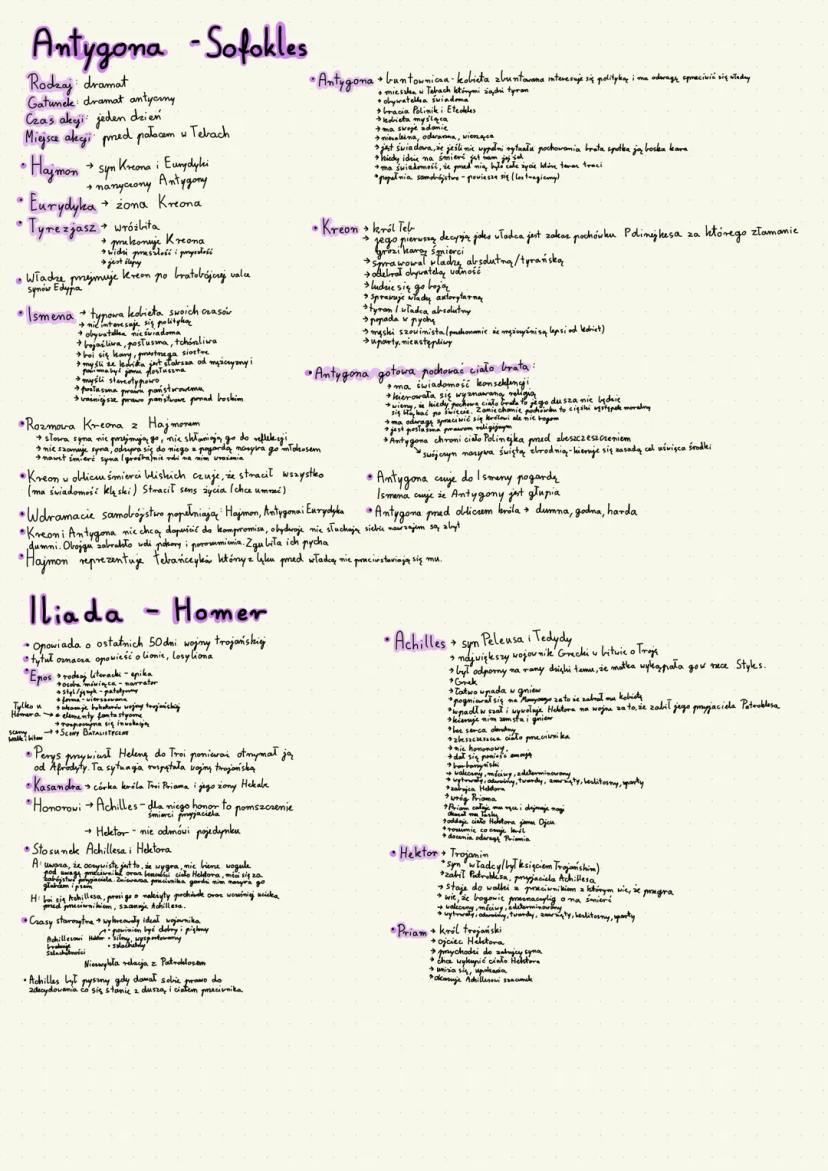 Antygona - Sofokles
Rodzaj: dramat
Gatunek: dramat antyczny
Czas akcji: jeden dzień
Miejsce akcji: przed pałacem w Tebach
• Hajmon → syn Kreona i Eurydyki
→ narzyczony Antygony
• Eurydyka → żona Kreona
• Tyrezjasz → wróżbita
→ przekonuje Kreona
→ widzi przeszłość i przyszłość
→ jest ślepy
• Władze przejmuje Kreon po bratobójczej walce
synów Edypa
• Ismena → typowa kobieta swoich czasów
→ nie interesuje się polityką
→ obywatelka nieświadoma
→ bojaźliwa, posłuszna, tchórzliwa
→ boi się kary, przestrzega siostrę
→ myśli że kobieta jest słabsza od mężczyzny i
powinna być jemu posłuszna
→ myśli stereotypowo
→ posłuszna prawu państwowemu
→ ważniejsze prawo państwowe ponad boskim
• Rozmowa Kreona z Hajmonem
→ słowa syna nie przejmują go, nie skłaniają go do refleksji
→ nie szanuje syna, odnosi się do niego z pogardą nazywa go młokosem
→ nawet śmierć syna (groźba) nie robi na nim wrażenia
• Kreon w obliczu śmierci bliskich czuje, że stracił wszystko
(ma świadomość klęski) Stracił sens życia (chce umrzeć)
• W dramacie samobójstwo popełniają: Hajmon, Antygona i Eurydyka
• Kreon i Antygona nie chcą dopuścić do kompromisu, obydwoje nie słuchają siebie nawzajem są zbyt
dumni. Obojgu zabrakło woli pokory i porozumienia. Zgubiła ich pycha
• Hajmon reprezentuje tebańczyków którzy z lęku przed władcą nie przeciwstawiają się mu.
• Antygona → buntownicza - kobieta zbuntowana interesuje się polityką i ma odwagę sprzeciwić się władzy
→ mieszka w Tebach którymi rządzi tyran
→ obywatelka świadoma
→ bracia Polinik i Eteokles
→ kobieta myśląca
→ ma swoje zdanie
→ niezależna, odważna, wierząca
→ jest świadoma, że jeśli nie wypełni rytuału pochowania brata spotka ją boska kara
→ kiedy idzie na śmierć jest nam jej żal
→ ma świadomość, że przed nią było całe życie które teraz traci
→ popełnia samobójstwo - powiesza się (los tragiczny)
• Kreon → król Teb
→ jego pierwszą decyzją jako władca jest zakaz pochówku Polinejkesa za którego złamanie
grozi karą śmierci
→ sprawował władzę absolutną/tyrańską
→ odebrał obywatelą wolność
→ ludzie się go boją
→ sprawuje władzę autorytarną
→ tyran / władca absolutny
→ popada w pychę
→ męski szowinista (przekonanie że mężczyźni są lepsi od kobiet)
→ uparty, nieustępliwy
• Antygona gotowa pochować ciało brata:
→ ma świadomość konsekfencji
→ kierowała się wyznawaną religią
→ wierzy, że kiedy pochowa ciało brata to jego dusza nie będzie
się błąkać po świecie. Zaniechanie pochówku to ciężki występek moralny
→ ma odwagę sprzeciwić się królowi ale nie bogom
→ jest posłuszna prawom religijnym
→ Antygona chroni ciało Polinejka przed zbeszczeszczeniem
swój czyn nazywa świętą zbrodnią - kieruje się zasadą cel uświęca środki
• Antygona czuje do Ismeny pogardę
Ismena czuje że Antygony jest głupia
• Antygona przed obliczem króla → dumna, godna, harda
Iliada - Homer
• opowiada o ostatnich 50 dni wojny trojańskiej
• tytuł oznacza opowieść o Ilionie, losy Iliona
• Epos → rodzaj literacki - epika
→ osoba mówiąca - narrator
→ styl/język - patetyczny
→ forma - wierszowana
→ ukazuje bohaterów wojny trojańskiej
Tylko u
Homera → elementy fantastyczne
→ rozpoczyna się inwokacją
sceny
walk i bitew → Sceny Batalistyczne
• Parys przywiózł Helenę do Troi ponieważ otrzymał ją
od Afrodyty. Ta sytuacja rozpętała wojnę trojańską
• Kasandra → córka króla Troi Priama i jego żony Hekabe
• Honorowi → Achilles - dla niego honor to pomszczenie
śmierci przyjaciela
→ Hektor - nie odmówi pojedynku
• Stosunek Achillesa i Hektora
A: uważa, że oczywiste jest to, że wygra, nie bierze wogule
pod uwagę przeciwnika oraz bezcześci ciało Hektora, mści się za
zabójstwo przyjaciela. Znieważa przeciwnika gardzi nim nazywa go
H: boi się Achillesa, prosi go o należyty pochówek oraz wcześniej ucieka
przed przeciwnikiem, szanuje Achillesa.
• Czasy starożytne → wykreowały ideał wojownika
• powinien być dobry i piękny
Achillesowi Hektor → • silny, wysportowany
brakuje • szlachetny
szlachetności
Niezwykła relacja z Patroklosem
• Achilles był pyszny gdy dawał sobie prawo do
zdecydowania co się stanie z duszą i ciałem przeciwnika
• Achilles → syn Peleusa i Tedydy
→ największy wojownik Grecki w bitwie o Troję
→ był odporny na rany dzięki temu, że matka wykąpała go w rzece Styks.
→ Grek
→ łatwo wpada w gniew
→ wpadł w szał i wywołuje Hektora na wojne za to, że zabił jego przyjaciela Patroklesa
→ kieruje nim zemsta i gniew
→ bez serca okrutny
→ zbeszczeszcza ciało przeciwnika
→ nie honorowy
→ dał się ponieść emocją
→ barbarzyński
→ waleczny, mściwy, zdeterminowany
→ wytrwały, odważny, twardy, zawzięty, bezlitosny, uparty
→ zabija Hektora
→ wróg Priama
→ Priam całuje mu ręce i obejmuje nogi
→ oddaje ciało Hektora jemu Ojcu
→ rozumie co czuje król
→ docenia odwagę Priama
• Hektor → Trojanin
→ syn władcy (był księciem Trojańskim)
→ zabił Patroklesa, przyjaciela Achillesa
→ staje do walki z przeciwnikiem z którym wie, że przegra
→ wie, że bogowie przeznaczyli go na śmierć
→ waleczny, mściwy, zdeterminowany
→ wytrwały, odważny, twardy, zawzięty, bezlitosny, uparty
• Priam → król trojański
→ ojciec Hektora
→ przychodzi do zabójcy syna
→ chce wykupić ciało Hektora
→ uniża się, upokarza
→ okazuje Achillesowi szacunek